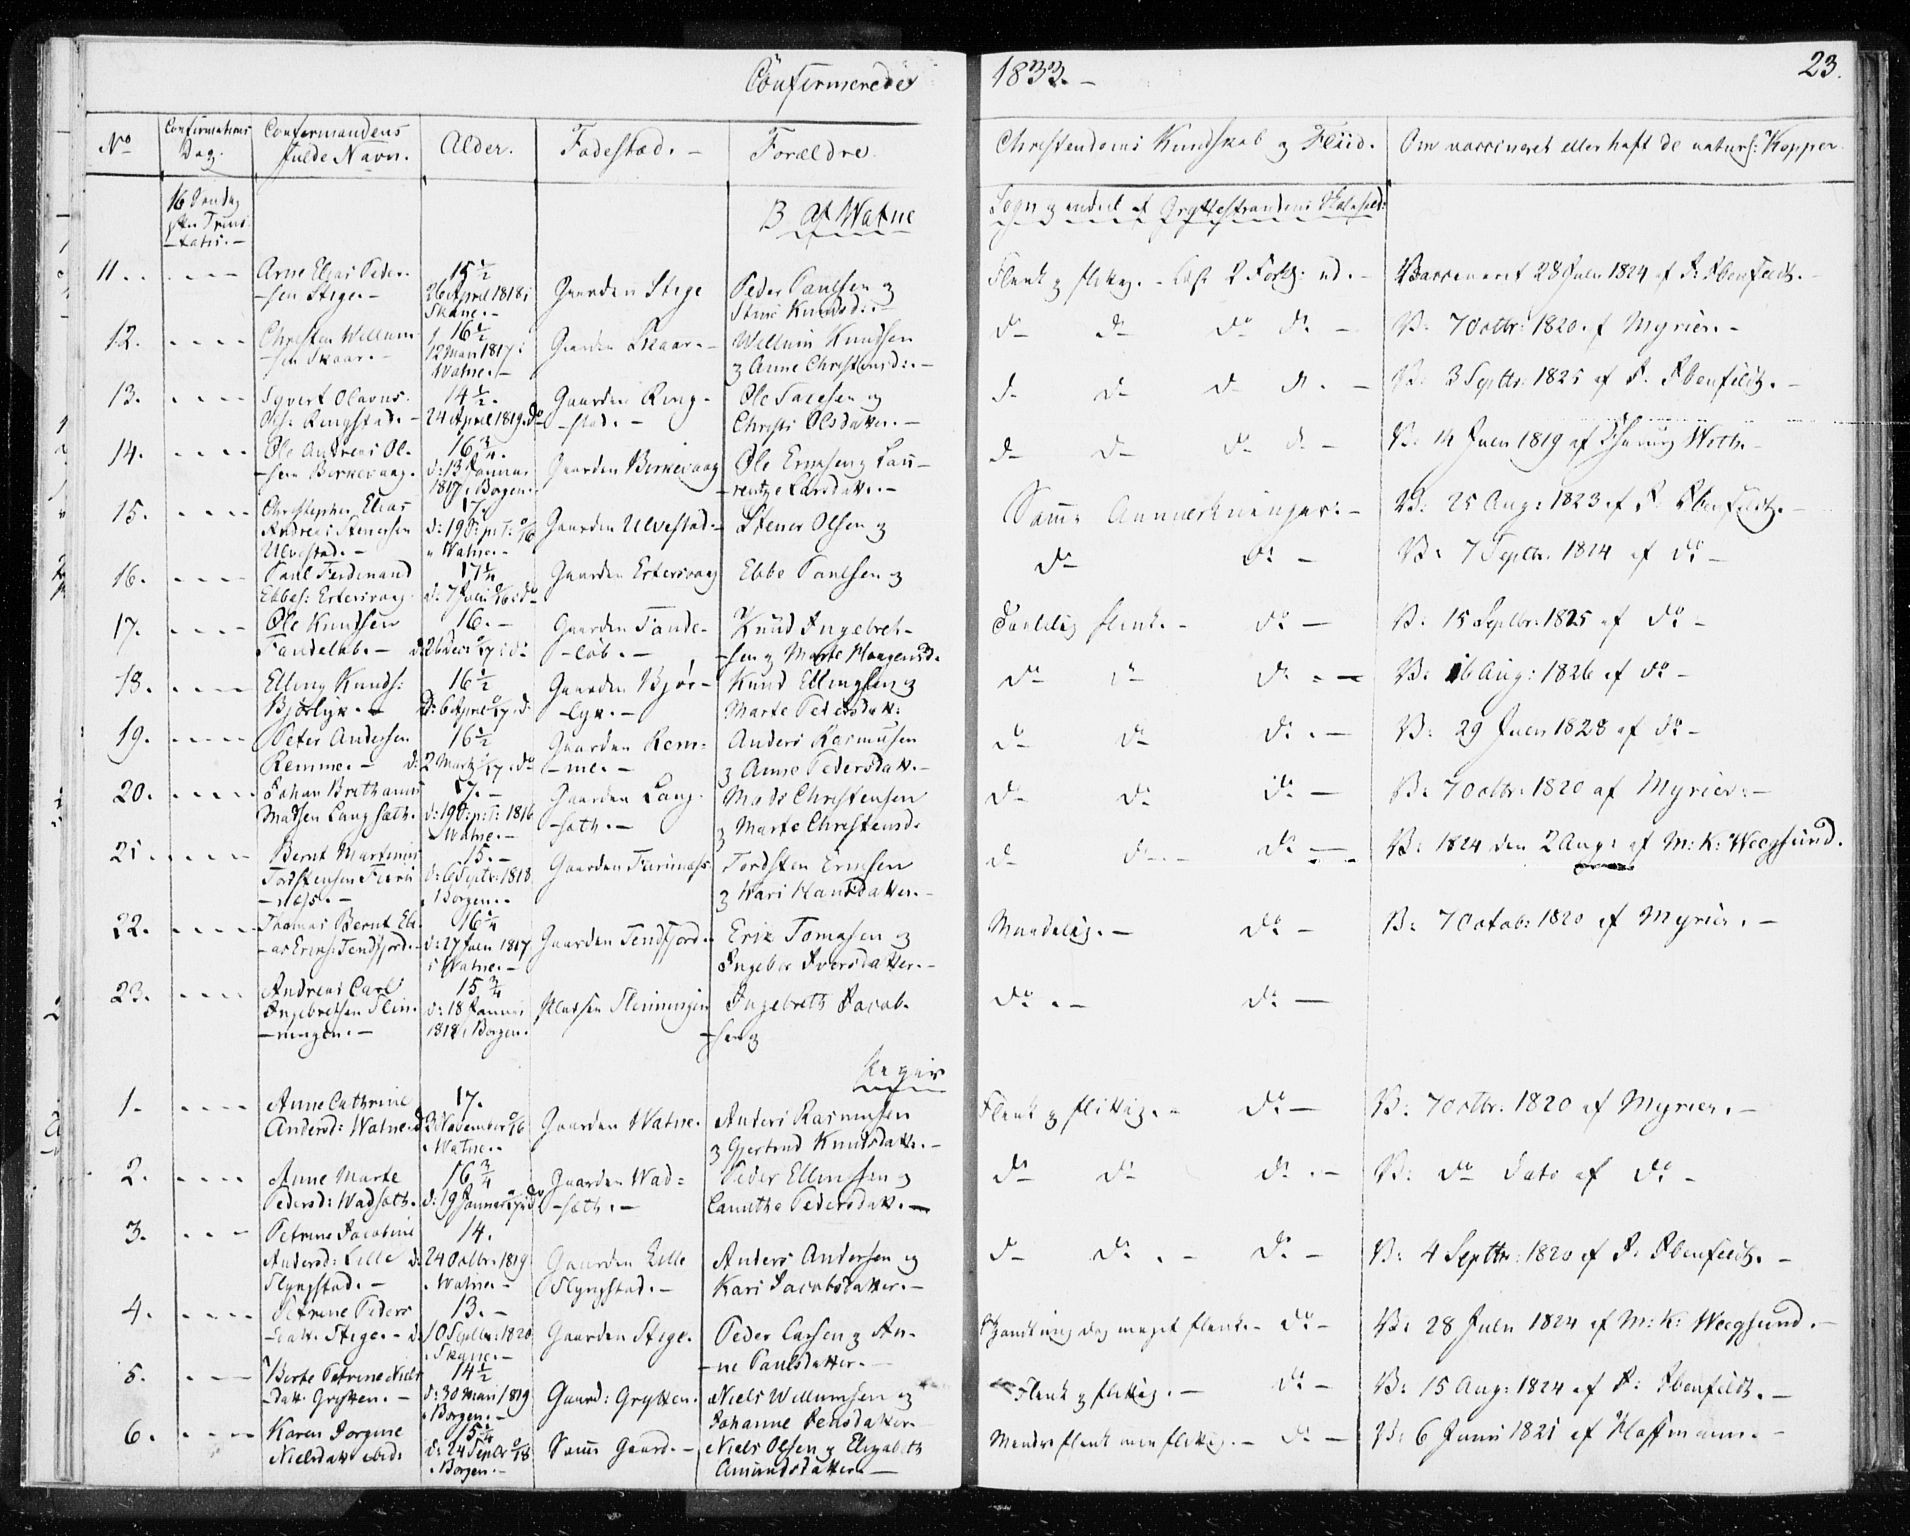 Confirmerede
1833.-
23.
No
Confirmations Dag.
Confirmandens fulde Navn.
Alder.
Fødestæd.-
Forældre.
Christendoms Kundskab og Fliid.
Om vaccineret eller haft de naturl: Kopper.
16 Søndag efter Trinitatis.-
B af Watne
Sogn og endeel af Gryttestrandens
11. Arne Elias Peder-
-sen Stige.-
15½
26 April 1818 i
Skane.-
Gaarden Stige
Peder Paulsen og
Knudsd:.-
Flink og flittig. - læst 2 Forkl: ud.-
Vaccineret 28 Juli 1824 af P. Ebenfeldt.-
12. Christen Willum-
-sen Skaar.-
16½
12 Marti 1817 i
Watne.-
Gaarden Skaar.-
Willum Knudsen
og Anne Christensd:.-
do do do do -
V: 7 Octbr: 1820 af Myrier.-
13. Syvert Olavus
Ols: Ringstad.-
14½.
24 April 1819. do
Gaarden Ring-
-stad.-
Ole Jacobsen og
Christi Olsdatter.-
do do do do. -
V: 3 Septbr: 1825 af P. Ebenfeldt.-
14. Ole Andreas Ol-
-sen Birkevaag.
16¾.
d: 13 Januar
1817 i Borgen.
Gaarden Birkevaag
Ole Ericksen og Lau-
-rentze Larsdatter.-
do do do do -
V: 14 Juli 1819 af With.-
15. Christopher Elias
Andreas Stenersen
Ulvestad.-
17.
i Watne.-
Gaarden Ulvestad-
Stener Olsen og
Samme Anmerkninger.-
V: 25 Aug: 1823 af P. Ebenfeldt.-
16. Paul Ferdinand
Ebbes: Ertesvaag.
17¼
Gaarden Ertesvaag
Ebbe Paulsen og
do do -
V: 7 Septbr. 1824 af do -
17. Ole Knudsen
Tandeløb.-
16.-
Gaarden Tande-
-løb.-
Knud Ingebret-
-sen og Marte Haagensd.
Taalelig flink.- do -
V: 15 Septbr: 1825 af do -
18. Elling Knuds:
Bjørlyk.-
16½
Gaarden Bjør-
-lyk.-
Knud Ellingsen og
Marte Pedersdatt:
do do do . -
V: 16 Aug: 1826 af do -
19. Peter Andersen
Remme.-
16½
Gaarden Rem-
-me.-
Anders Rasmusen
og Anne Pedersdatt.-
do do do . -
V: 29 Juli 1828 af do -
20. Johan Brithanus
Matsen Langsæth.
17.-
i Watne.-
Gaarden Lang-
-sæth.-
Mads Christensen
og Marte Christensd.
do do do -
V: 7 Octbr: 1820 af Myrier.-
21. Bernt Martinus
Tordstensen Furi-
-næss.-
15.-
d: 6 Septbr: 1818
i Borgen.-
Gaarden Furinæss
Tordsten Ericksen
og Kari Hansdatter.-
do do.- do -
V: 1824 den 2 Aug: af M: K: Weegsund.
22. Thomas Bernt Eli-
-as Erics: Tendfjord.-
16¼
d: 27 Juli 1817
i Watne.-
Gaarden Tendfjord.
Eric Tomasen og
Ingebor Iversdatter.-
Maadelig.- do -
V: 7 Octob: 1820 af Myrier.-
23. Andreas Carl
Ingebretsen Slin-
-ningen.-
15¾
d: 18 Januar
1818 i Borgen.
Pladsen Slinningen
Ingebreth Jacob-
-sen og
do . - do -
Piger
1. Anne Cathrine
Andersd: Watne.
17.
i Watne.-
Gaarden Watne.
Anders Rasmusen
og Gjertrud Knudsdatt.-
Flink og flittig.- do -
V: 7 Octbr. 1820 af Myrier.-
2. Anne Marte
Pedersd: Wadsæth.
16¾
Gaarden Wad-
-sæth.-
Peder Ellingsen og
Canutha Pedersdatt.-
do do do . -
V: do dato af do -
3. Petrine Jacobine
Andersd: Lille
Slyngstad.-
14.
d: 24 Octbr. 1819
i Watne.-
Gaarden Lille
Slyngstad.-
Anders Andersen og
Kari Jacobsdatter.-
do do . - do -
V: 4 Septbr: 1820 af P. Ebenfeldt.-
4. Petrine Peders
-datt: Stige.-
13.-
d: 10 Septbr: 1820
i Skane.-
Gaarden Stige.
Peder Larsen og An-
-ne Paulsdatter.-
meget flink.- do -
V: 28 Juli 1824 af M: K: Weegsund.-
5. Berte Petrine Niels
-datt: Grytten.-
14½
d: 30 Marti 1819
i Borgen.-
Gaard: Grytten.
Niels Willumsen og
Johanne Jensdatter.
Flink og flittig.- do -
V: 15 Aug: 1824 af P: Ebenfeldt.-
6. Karen Jorgine
Nielsdatt ibid:
15¼
i Borgen.-
Samme Gaard.-
Niels Olsen og Elizabeth
Amundsdatter.-
Mindre flink men flittig.- do -
V: 6 Juni 1821 af Hoffmann.-